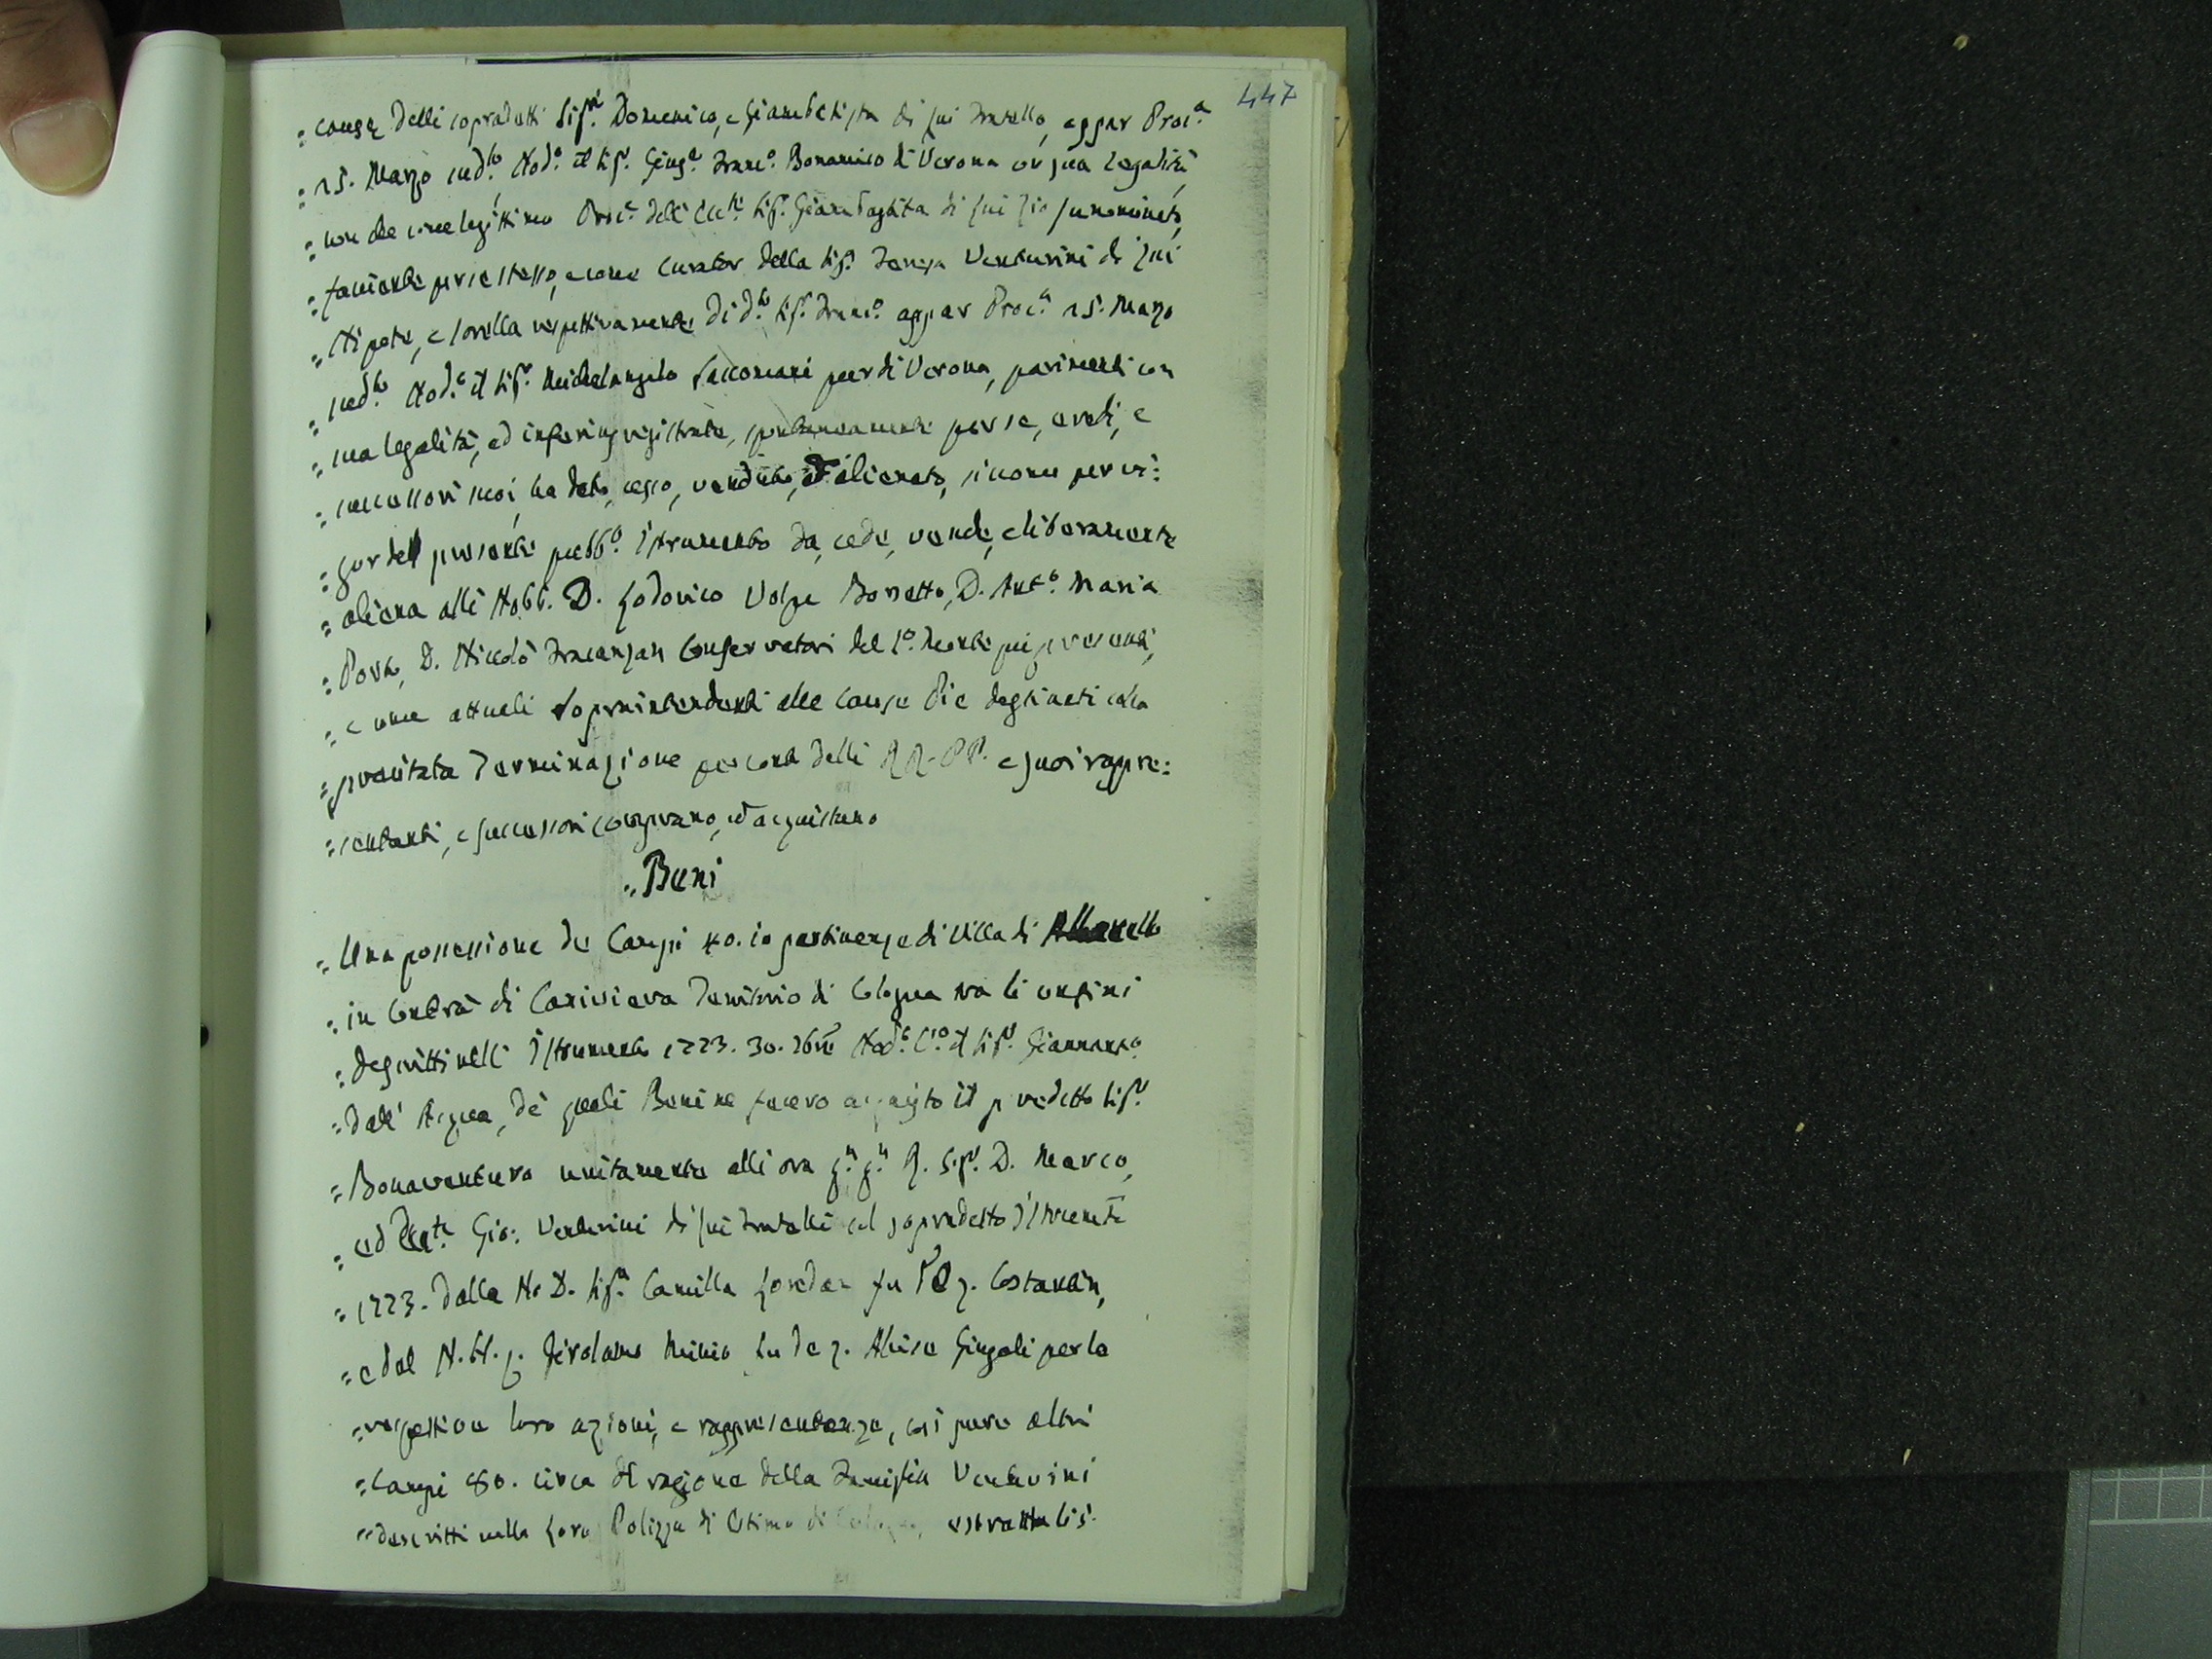 447
: cause delli sopradetti Sig.ri Domenico, e Giambatista di lui Fratello, appar Proc.a
: 15. Marzo sud.to Nod.o il Sig.r Gius.e Franc.o Bonamico di Verona con sua legalità,
: non che come legittimo Proc.r dell' Ecc.te Sig.r Giambattista di lui Zio sunominato,
: faciente per se stesso, e come Curator della Sig.a Teresa Venturini di lui
: Nipote, e sorella respettivamente di d.to Sig.r Franc.o appar Proc.a 15. Marzo
: sud.to Nod.o il Sig.r Michelangelo Sacconari pur di Verona, parimenti con
: sua legalità, ed infering registrate, spontaneamente per se, eredi, e
: successori suoi, ha dato, cesso, venduto, ed alienato, siccome per vi:
: gor del presente pubb.o Istrumento da, cede, vende, e liberamente
: aliena alli Nobb. D. Lodovico Volpe Borsetto, D. Ant.o Maria
: Porto, D. Nicolò Fracanzan Conservatori del S.o Monte qui presenti,
: e come attuali Sopraintendenti alle Cause Pie destinati colla
: precitata Terminazione per conto delli RR. PP. e suoi rappre:
: sentanti, e successori comprano, ed acquistano
: Beni
: Una possessione de Campi 40. in pertinenze di Villa di
: in Contrà di Territorio di Cologna tra li confini
: descritti nell' Istrumento 1723. 30. Nod.o il Sig.r
: dall' Acqua, de' quali Beni ne fecero acquisto il predetto Sig.r
: Bonaventura unitamente alli ora q.m q.m R. Sig.r D. Marco,
: ed Ecc.te Gio: Venturini di lui Fratelli col sopradetto Istrumento
: 1723. dalla N. D. Sig.a Camilla Loredan fu de q. Costantin,
: e dal N. H. s. Girolamo Minio fu de q. Alvise per le
: respettive loro azioni, e rappresentanze, così pure altri
: Campi 80. circa di ragione della Famiglia Venturini
: descritti nella loro Polizza di Estimo di Cologna, estratta li 5.